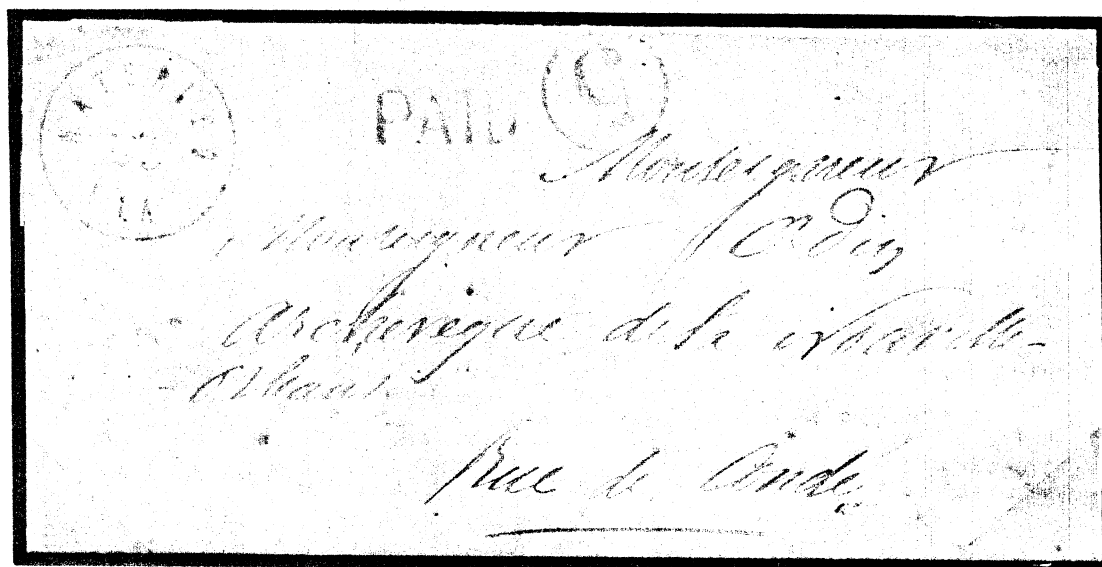 NATCHITOCHES
LA
PAID 5
Monseigneur
Monseigneur Odin
Archevêque de la Nouvelle-
Orléans
Rue de Condé